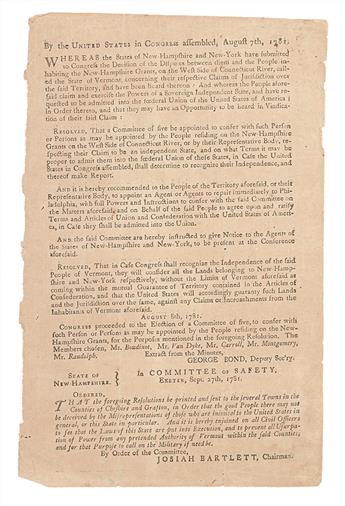 By the UNITED STATES in CONGRESS assembled, August 7th, 1781.
WHEREAS the States of New-Hampshire and New-York have submitted
to Congress the Decision of the Disputes between them and the People in-
habiting the New-Hampshire Grants, on the West Side of Connecticut River, call-
ed the State of Vermont, concerning their respective Claims of Jurisdiction over
the said Territory, and have been heard thereon: And whereas the People afore-
said claim and exercise the Powers of a Sovereign Independent State, and have re-
quested to be admitted into the fœderal Union of the United States of America;
In Order thereto, and that they may have an Opportunity to be heard in Vindica-
tion of their said Claim:
RESOLVED, That a Committee of five be appointed to confer with such Person
or Persons as may be appointed by the People residing on the New-Hampshire
Grants on the West Side of Connecticut River, or by their Representative Body, re-
specting their Claim to be an independent State, and on what Terms it may be
proper to admit them into the fœderal Union of these States, in Case the United
States in Congress assembled, shall determine to recognize their Independence, and
thereof make Report.
AND it is hereby recommended to the People of the Territory aforesaid, or their
Representative Body, to appoint an Agent or Agents to repair immediately to Phi-
ladelphia, with full Powers and Instructions to confer with the said Committee on
the Matters aforesaid, and on Behalf of the said People to agree upon and ratify
Terms and Articles of Union and Confederation with the United States of Ameri-
ca, in Case they shall be admitted into the Union.
AND the said Committee are hereby instructed to give Notice to the Agents of
the States of New-Hampshire and New-York, to be present at the Conference
aforesaid.
RESOLVED, That in Case Congress shall recognize the Independence of the said
People of Vermont, they will consider all the Lands belonging to New-Hamp-
shire and New-York respectively, without the Limits of Vermont aforesaid as
coming within the mutual Guarantee of Territory contained in the Articles of
Confederation, and that the United States will accordingly guaranty such Lands
and the Jurisdiction over the same, against any Claims or Incroachments from the
Inhabitants of Vermont aforesaid.
AUGUST 8th, 1781.
CONGRESS proceeded to the Election of a Committee of five, to confer with
such Person or Persons as may be appointed by the People residing on the New-
Hampshire Grants, for the Purposes mentioned in the foregoing Resolution. The
Members chosen, Mr. Boudinot, Mr. Van Dyke, Mr. Carroll, Mr. Montgomery,
Mr. Randolph.
Extract from the Minutes,
GEORGE BOND, Deputy Sec'ry.
STATE OF
NEW-HAMPSHIRE.
In COMMITTEE of SAFETY,
EXETER, Sept. 27th, 1781.
ORDERED,
THAT the foregoing Resolutions be printed and sent to the several Towns in the
Counties of Cheshire and Grafton, in Order that the good People there may not
be deceived by the Misrepresentations of those who are inimical to the United States in
general, or this State in particular. And it is hereby enjoined on all Civil Officers
to see that the Laws of this State are put into Execution, and to prevent all Usurpa-
tion of Power from any pretended Authority of Vermont within the said Counties,
and for that Purpose to call on the Military if need be.
By Order of the Committee,
JOSIAH BARTLETT, Chairman.